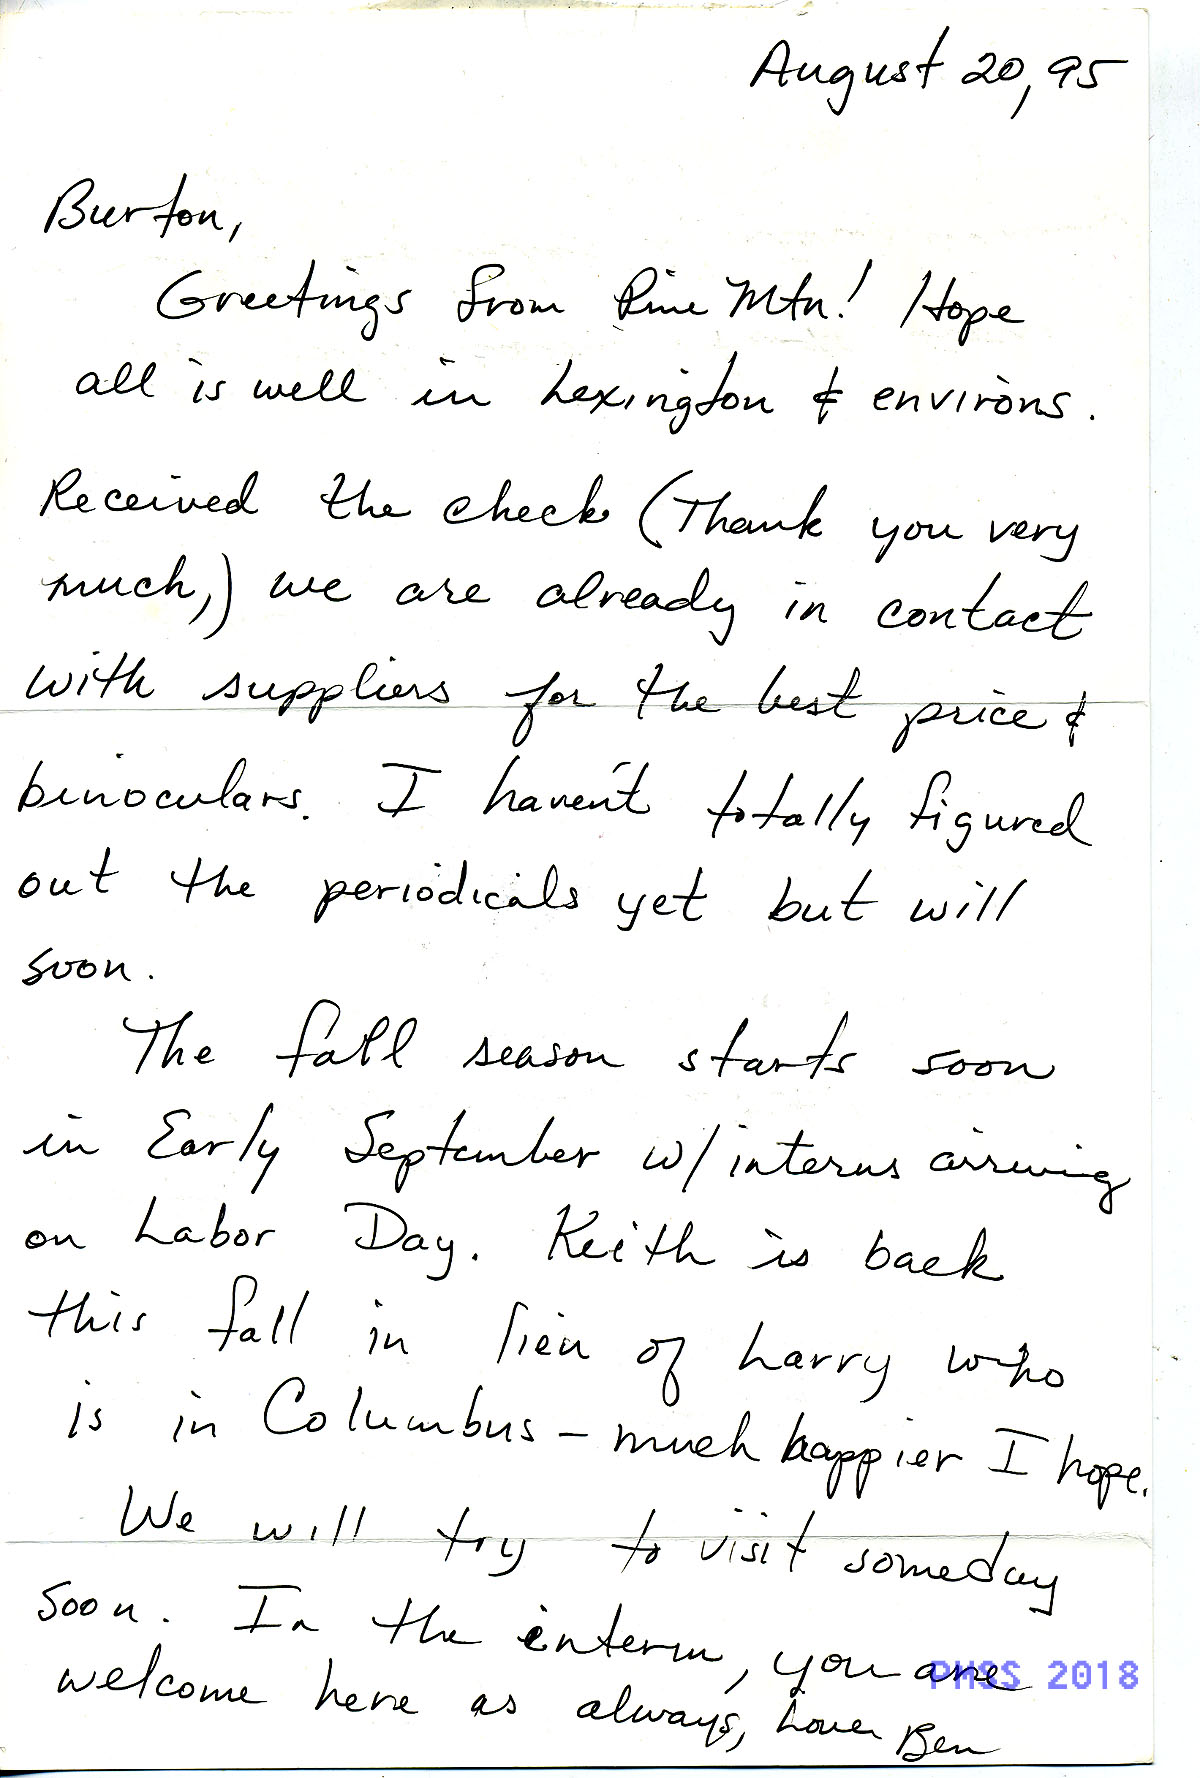 August 20, 95
Burton,
Greetings from Pine Mtn! Hope
all is well in Lexington & environs.
Received the check (Thank you very
much,) we are already in contact
with suppliers for the best price &
binoculars. I haven't totally figured
out the periodicals yet but will
soon.
The fall season starts soon
in Early September w/ interns arriving
on Labor Day. Keith is back
this fall in lieu of Larry who
is in Columbus - much happier I hope.
We will try to visit someday
soon. In the interm, you are
welcome here as always, Love Ben
PMSS 2018